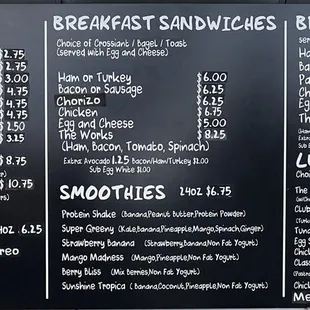 BREAKFAST SANDWICHES
Choice of Crossiant / Bagel / Toast
(served with Egg and Cheese)
Ham or Turkey $6.00
Bacon or Sausage $6.25
Chorizo $6.25
Chicken $6.75
Egg and Cheese $5.00
The Works $8.25
(Ham, Bacon, Tomato, Spinach)
Extra: Avocado 1.25 Bacon/Ham/Turkey $2.00
Sub Egg White $1.00
SMOOTHIES 24oz $6.75
Protein Shake (Banana,Peanut Butter,Protein Powder)
Super Greeny (Kale,Banana,Pineapple,Mango,Spinach,Ginger)
Strawberry Banana (Strawberry,Banana,Non Fat Yogurt)
Mango Madness (Mango,Pineapple,Non Fat Yogurt)
Berry Bliss (Mix Berries,Non Fat Yogurt)
Sunshine Tropica (Banana,Coconut,Pineapple,Non Fat Yogurt)
$2.75
$2.75
$3.00
$4.75
$4.75
$4.75
$2.50
$3.25
$8.75
$10.75
6.25